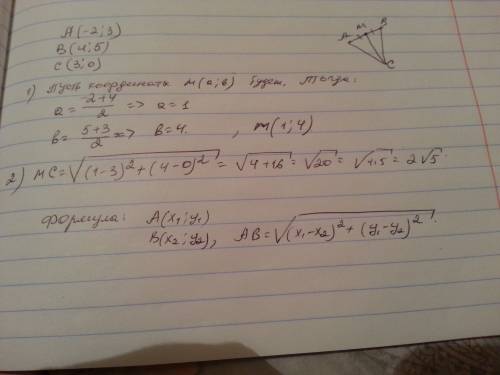 A(-2;3)
B(4;5)
C(3;0)
A M B
C
1) Пусть координаты M(a;в) будет, тогда:
a = 2+4/2 => a=1
в = 5+3/2 => в=4. , m(1;4)
2) MC=√(1-3)²+(4-0)² = √4+16 = √20 = √4.5 = 2√5.
Формула: A(x₁;y₁)
B(x₂;y₂), AB=√(x₁-x₂)²+(y₁-y₂)².